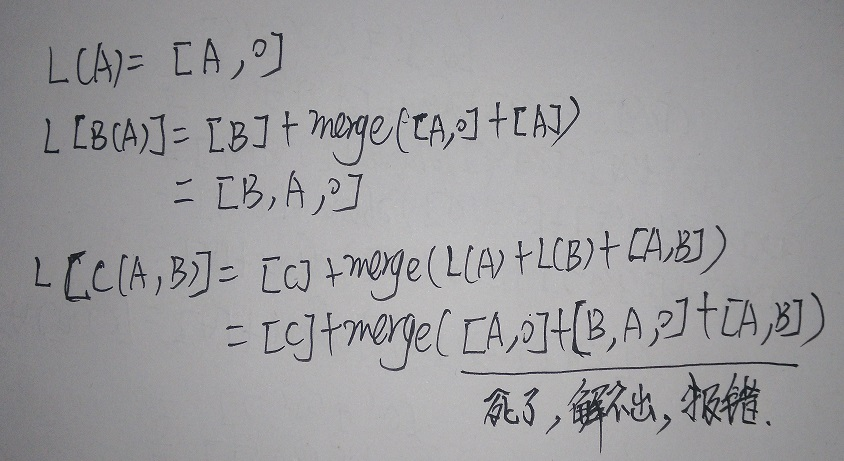 L(A)= [A,o]
L[B(A)]= [B]+merge([A,o]+[A])
= [B,A,o]
L[C(A,B)]= [C]+merge(L(A)+L(B)+[A,B])
= [C]+merge([A,o]+[B,A,o]+[A,B])
死了,解不出,报错.